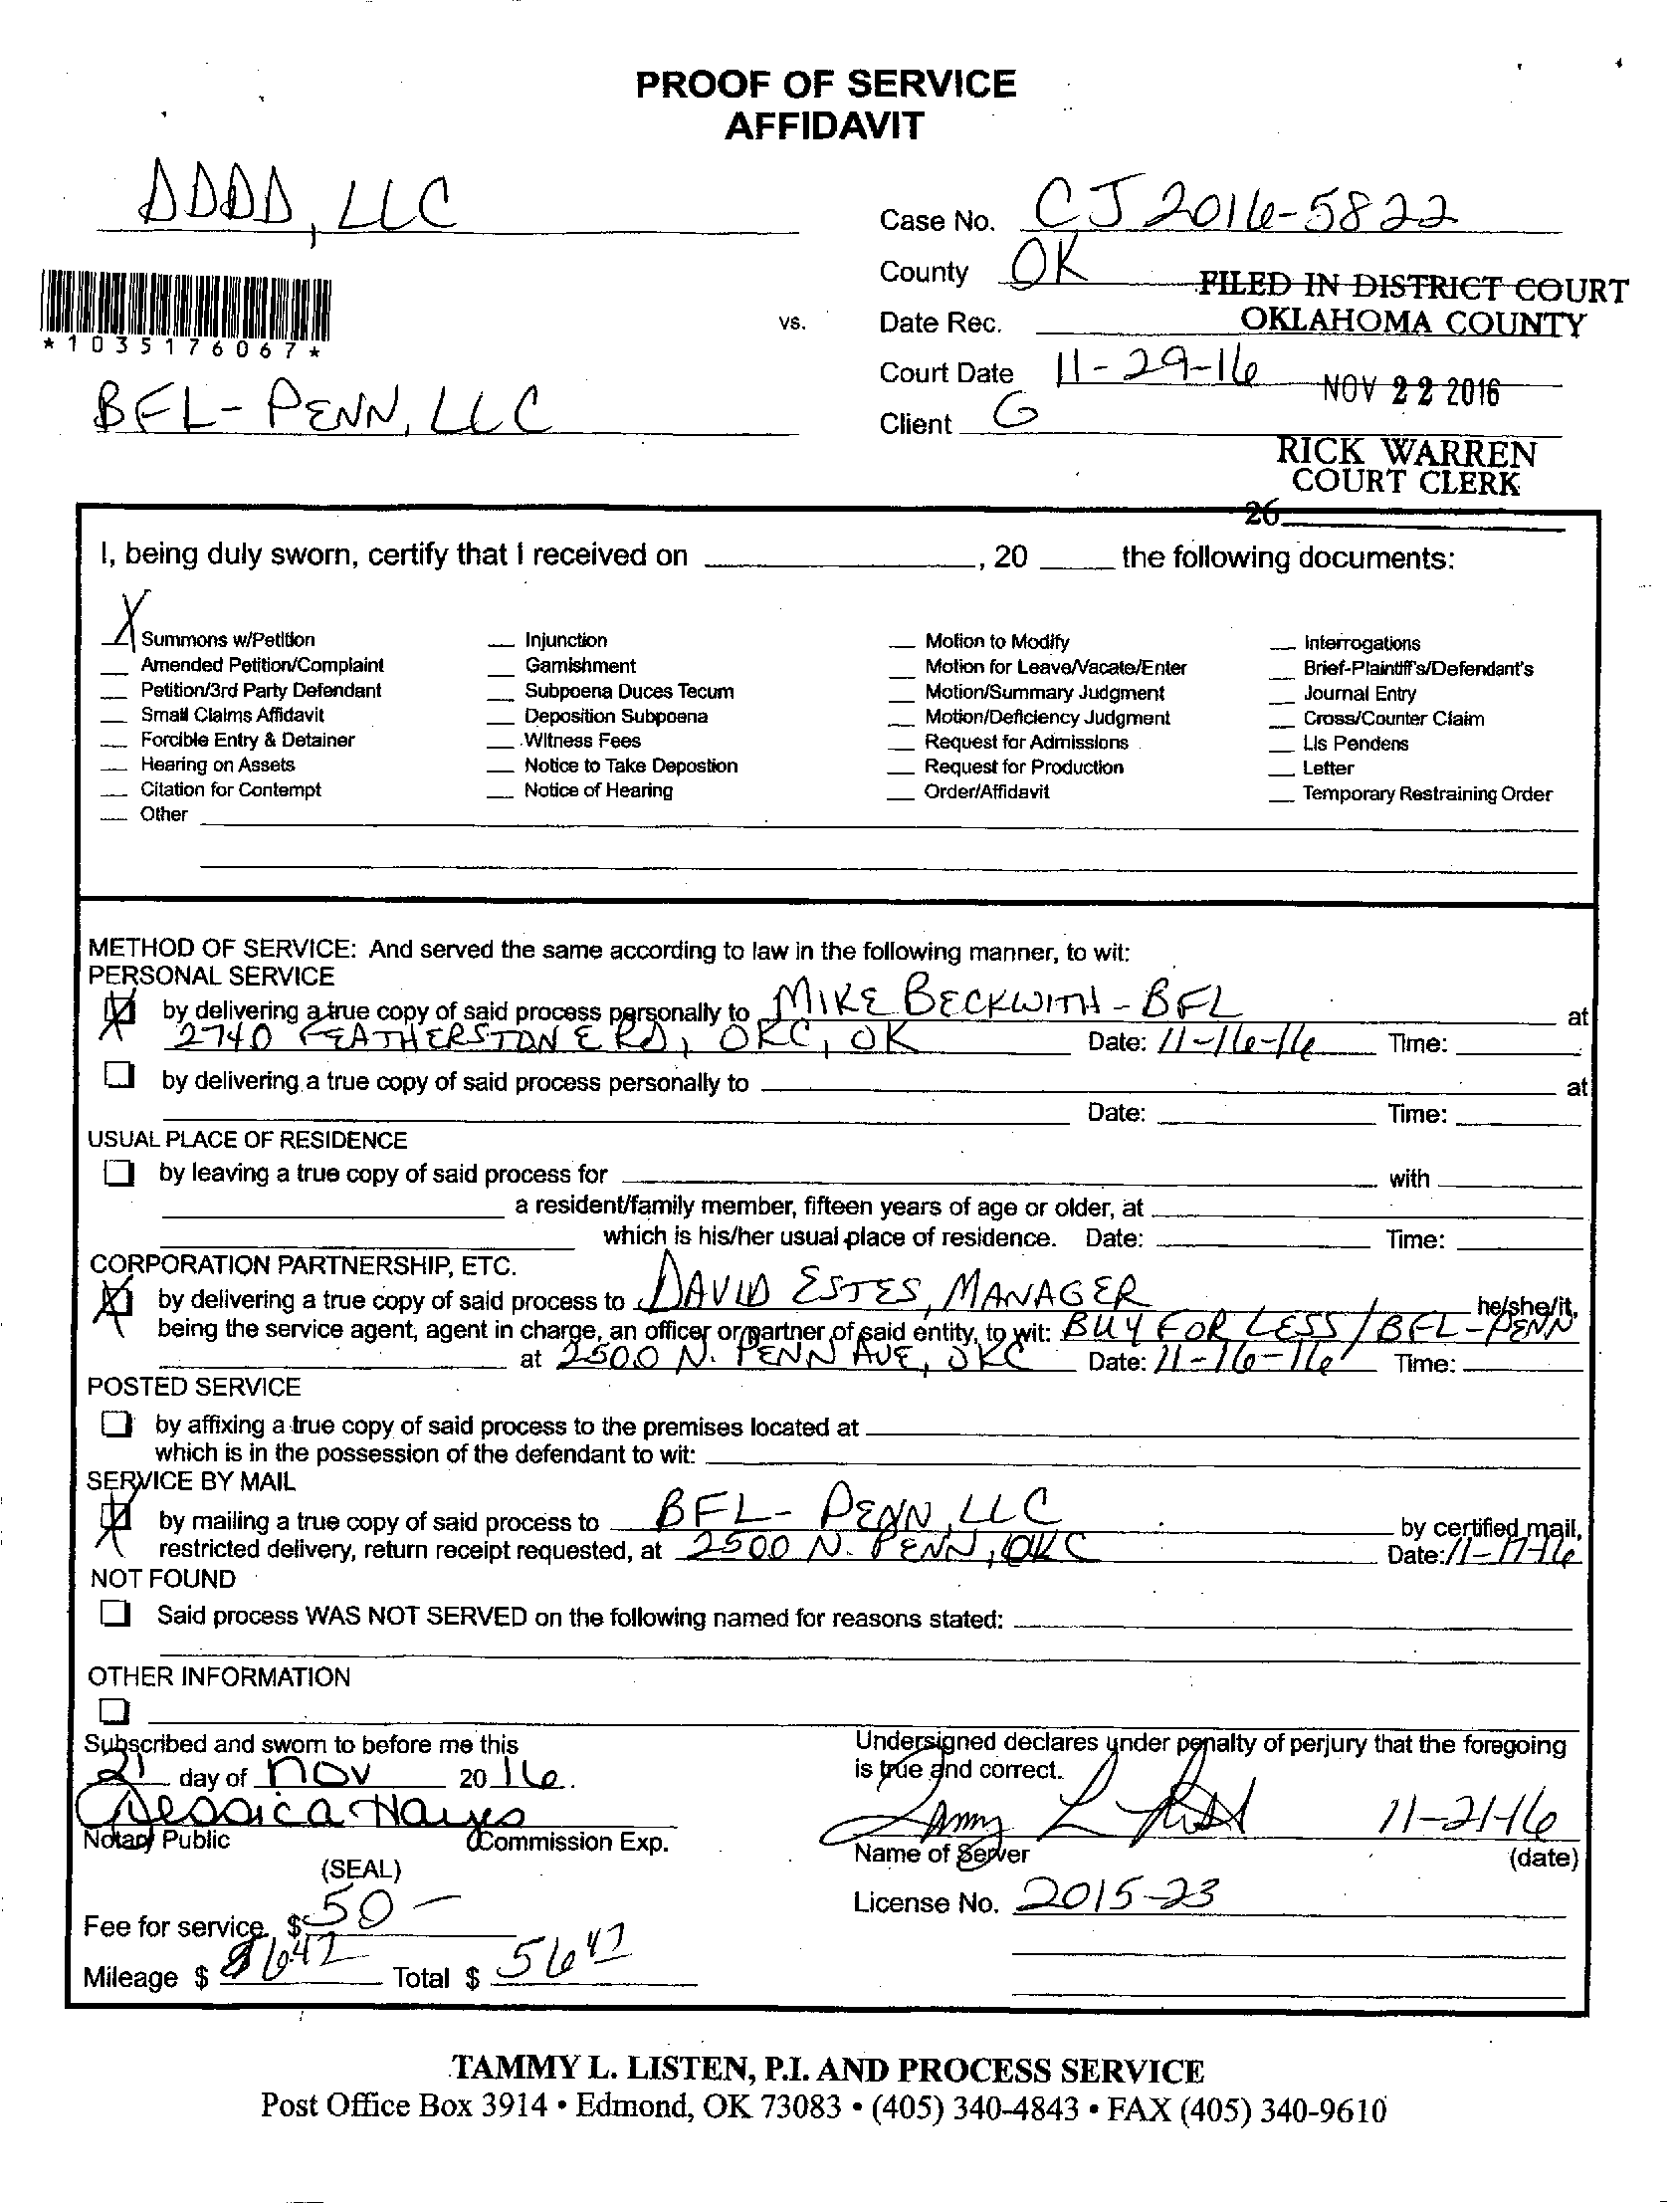 PROOF OF SERVICE
AFFIDAVIT
DDDD, LLC
Case No. CJ 2016-5822
County OK
FILED IN DISTRICT COURT
OKLAHOMA COUNTY
*1035176067*
vs.
Date Rec.
Court Date 11-29-16
NOV 22 2016
BFL-PENN, LLC
Client G
RICK WARREN
COURT CLERK
26
I, being duly sworn, certify that I received on , 20 the following documents:
X Summons w/Petition
Amended Petition/Complaint
Petition/3rd Party Defendant
Small Claims Affidavit
Forcible Entry & Detainer
Hearing on Assets
Citation for Contempt
Other
Injunction
Garnishment
Subpoena Duces Tecum
Deposition Subpoena
Witness Fees
Notice to Take Depostion
Notice of Hearing
Motion to Modify
Motion for Leave/Vacate/Enter
Motion/Summary Judgment
Motion/Deficiency Judgment
Request for Admissions
Request for Production
Order/Affidavit
Interrogations
Brief-Plaintiff's/Defendant's
Journal Entry
Cross/Counter Claim
Lis Pendens
Letter
Temporary Restraining Order
METHOD OF SERVICE: And served the same according to law in the following manner, to wit:
PERSONAL SERVICE
X by delivering a true copy of said process personally to MIKE BECKWITH-BFL at
2740 FEATHERSTONE RD, OKC, OK Date: 11-16-16 Time:
by delivering a true copy of said process personally to at
Date: Time:
USUAL PLACE OF RESIDENCE
by leaving a true copy of said process for with
a resident/family member, fifteen years of age or older, at
which is his/her usual place of residence. Date: Time:
CORPORATION PARTNERSHIP, ETC.
X by delivering a true copy of said process to DAVID ESTES, MANAGER he/she/it,
being the service agent, agent in charge, an officer or partner of said entity, to wit: BUY FOR LESS/BFL-PENN
at 2500 N. PENN AVE, OKC Date: 11-16-16 Time:
POSTED SERVICE
by affixing a true copy of said process to the premises located at
which is in the possession of the defendant to wit:
SERVICE BY MAIL
X by mailing a true copy of said process to BFL-PENN, LLC by certified mail,
restricted delivery, return receipt requested, at 2500 N. PENN, OKC Date: 11-17-16
NOT FOUND
Said process WAS NOT SERVED on the following named for reasons stated:
OTHER INFORMATION
Subscribed and sworn to before me this
21 day of nov 2016.
Jessica Hayes
Notary Public Commission Exp.
(SEAL)
Fee for service $ 50-
Mileage $ 6.47 Total $ 56 47
Undersigned declares under penalty of perjury that the foregoing
is true and correct.
Tammy L List 11-21-16
Name of Server (date)
License No. 2015-23
TAMMY L. LISTEN, P.I. AND PROCESS SERVICE
Post Office Box 3914 • Edmond, OK 73083 • (405) 340-4843 • FAX (405) 340-9610